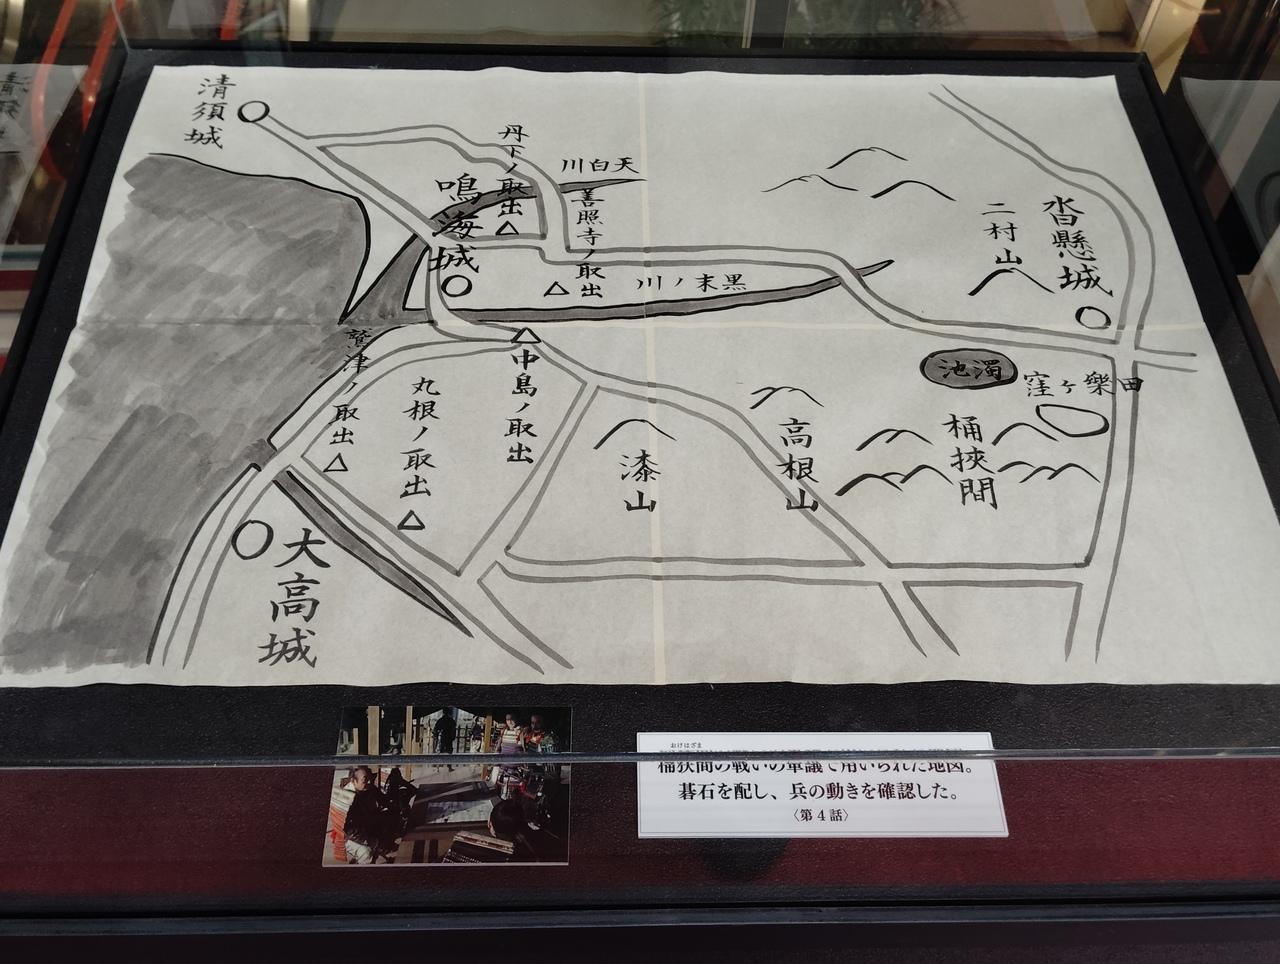 清須城
丹下ノ取出
鳴海城
川白天
善照寺ノ取出
川ノ末黒
二村山
沓懸城
鷲津ノ取出
丸根ノ取出
中島ノ取出
漆山
高根山
池濁
窪ヶ樂田
桶挾間
大高城
おけはざま
桶狭間の戦いの軍議で用いられた地図。
碁石を配し、兵の動きを確認した。
〈第4話〉